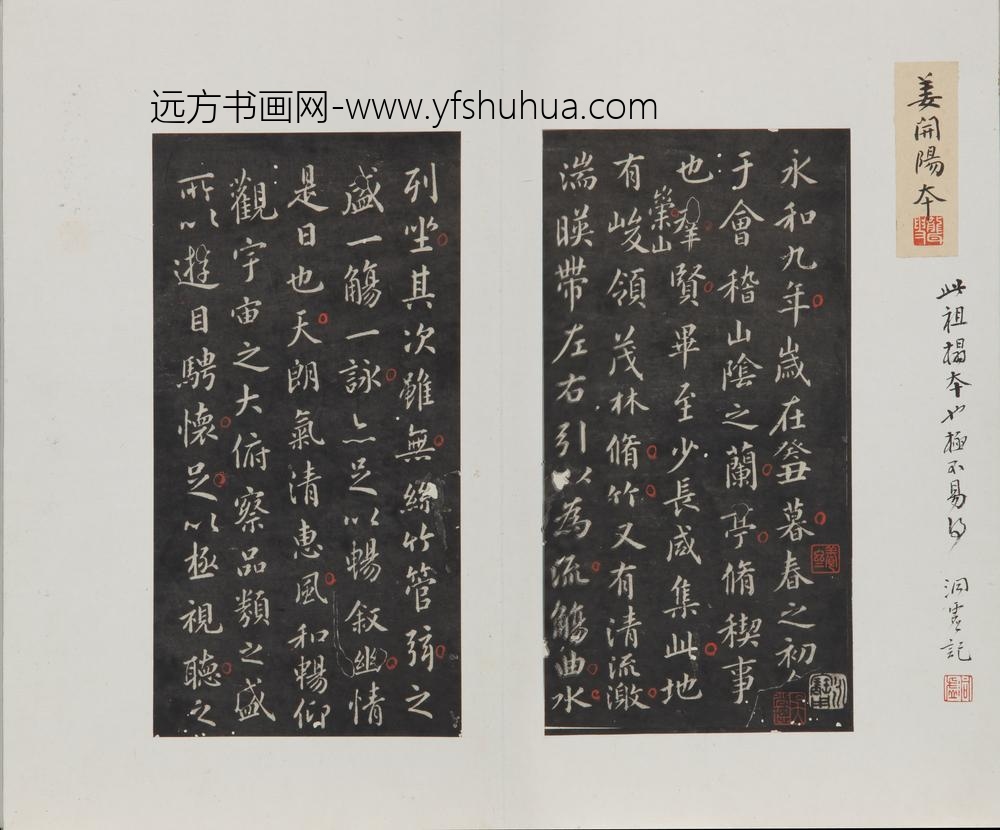 远方书画网-www.yfshuhua.com
姜開陽本
此祖搨本也極不易得
永和九年歲在癸丑暮春之初
于會稽山陰之蘭亭脩稧事
也羣賢畢至少長咸集此地
崇山
有峻領茂林脩竹又有清流激
湍暎帶左右引以為流觴曲水
列坐其次雖無絲竹管弦之
盛一觴一詠亦足以暢叙幽情
是日也天朗氣清惠風和暢仰
觀宇宙之大俯察品類之盛
所以遊目騁懷足以極視聽之